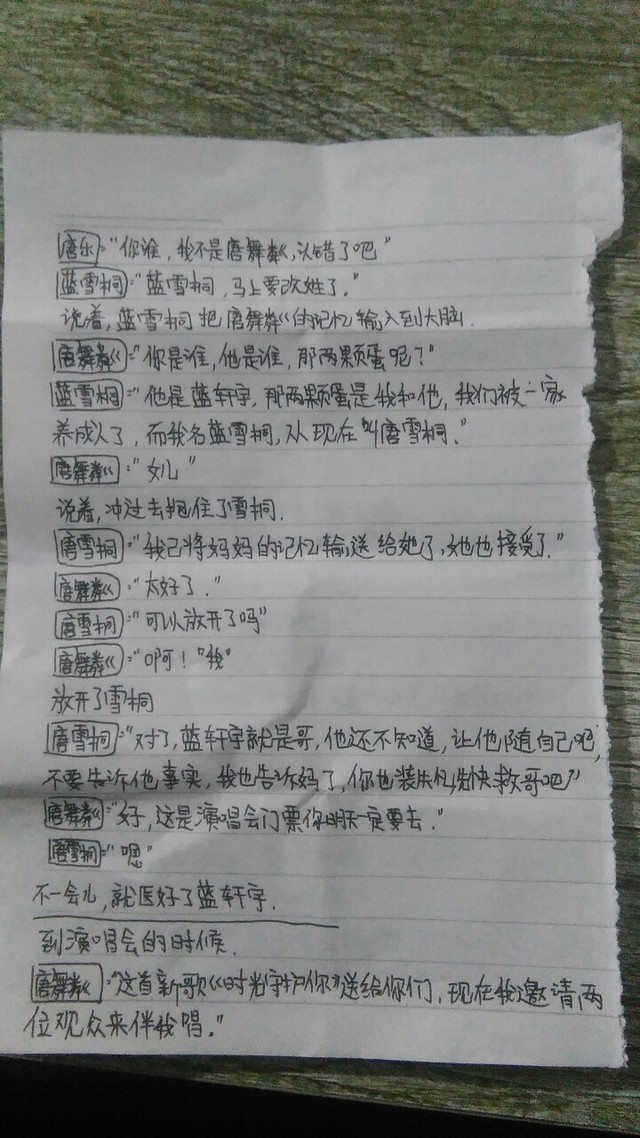 唐乐："你谁，我不是唐舞麟，认错了吧"
蓝雪桐："蓝雪桐，马上要改姓了."
说着，蓝雪桐把唐舞麟的记忆输入到大脑.
唐舞麟："你是谁，他是谁，那两颗蛋呢？"
蓝雪桐："他是蓝轩宇，那两颗蛋是我和他，我们被一家
养成人了，而我名蓝雪桐，从现在叫唐雪桐."
唐舞麟："女儿"
说着，冲过去抱住了雪桐.
唐雪桐："我已将妈妈的记忆输送给她了，她也接受了."
唐舞麟："太好了."
唐雪桐："可以放开了吗"
唐舞麟："啊！"我"
放开了雪桐
唐雪桐："对了，蓝轩宇就是哥，他还不知道，让他随自己吧，
不要告诉他事实，我也告诉妈了，你也装失忆，先快救哥吧？"
唐舞麟："好，这是演唱会门票你明天一定要去."
唐雪桐："嗯"
不一会儿，就医好了蓝轩宇.
到演唱会的时候.
唐舞麟："这首新歌《时光守护你》送给你们，现在我邀请两
位观众来伴我唱."